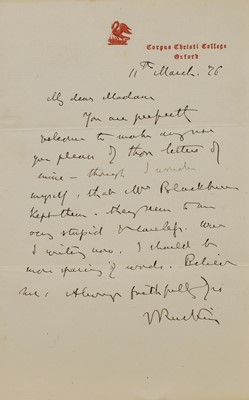 Corpus Christi College
Oxford
11th March. 76
My dear Madam
You are perfectly
welcome to make any use
you please of those letters of
mine - though I wonder
myself, that Mrs Blackburn
kept them - they seem to me
very stupid & careless. Were
I writing now, I should be
more sparing of words. Believe
me, Always faithfully yrs
J Ruskin